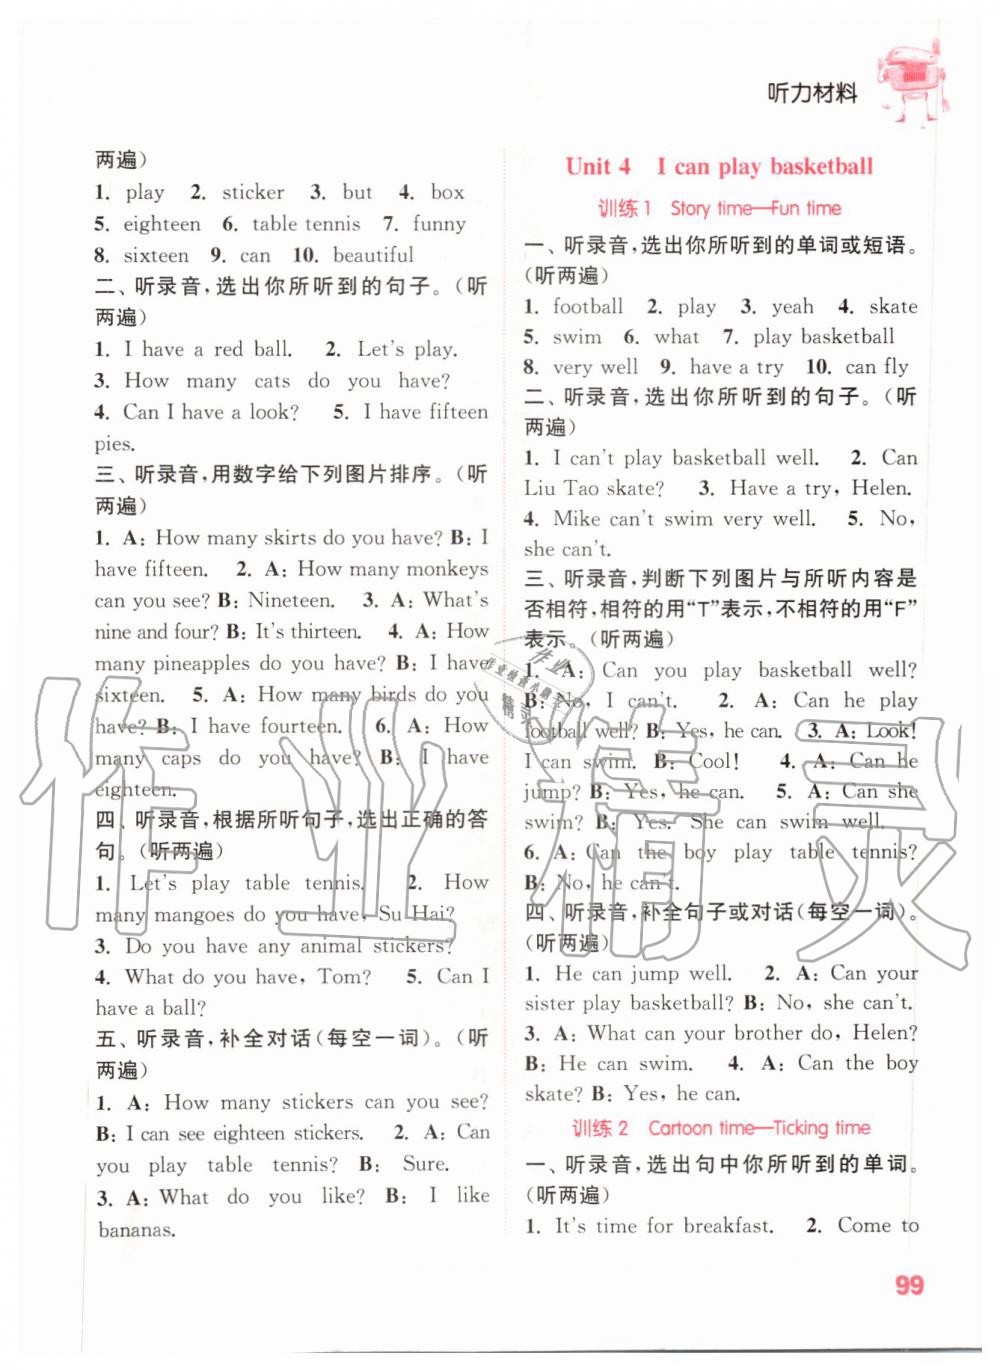 听力材料
两遍)
1. play 2. sticker 3. but 4. box
5. eighteen 6. table tennis 7. funny
8. sixteen 9. can 10. beautiful
二、听录音,选出你所听到的句子。(听
两遍)
1. I have a red ball. 2. Let's play.
3. How many cats do you have?
4. Can I have a look? 5. I have fifteen
pies.
三、听录音,用数字给下列图片排序。(听
两遍)
1. A: How many skirts do you have? B: I
have fifteen. 2. A: How many monkeys
can you see? B: Nineteen. 3. A: What's
nine and four? B: It's thirteen. 4. A: How
many pineapples do you have? B: I have
sixteen. 5. A: How many birds do you
have? B: I have fourteen. 6. A: How
many caps do you have? B: I have
eighteen.
四、听录音,根据所听句子,选出正确的答
句。(听两遍)
1. Let's play table tennis. 2. How
many mangoes do you have, Su Hai?
3. Do you have any animal stickers?
4. What do you have, Tom? 5. Can I
have a ball?
五、听录音,补全对话(每空一词)。(听
两遍)
1. A: How many stickers can you see?
B: I can see eighteen stickers. 2. A: Can
you play table tennis? B: Sure.
3. A: What do you like? B: I like
bananas.
Unit 4 I can play basketball
训练1 Story time—Fun time
一、听录音,选出你所听到的单词或短语。
(听两遍)
1. football 2. play 3. yeah 4. skate
5. swim 6. what 7. play basketball
8. very well 9. have a try 10. can fly
二、听录音,选出你所听到的句子。(听
两遍)
1. I can't play basketball well. 2. Can
Liu Tao skate? 3. Have a try, Helen.
4. Mike can't swim very well. 5. No,
she can't.
三、听录音,判断下列图片与所听内容是
否相符,相符的用“T”表示,不相符的用“F”
表示。(听两遍)
1. A: Can you play basketball well?
B: No, I can't. 2. A: Can he play
football well? B: Yes, he can. 3. A: Look!
I can swim. B: Cool! 4. A: Can he
jump? B: Yes, he can. 5. A: Can she
swim? B: Yes. She can swim well.
6. A: Can the boy play table tennis?
B: No, he can't.
四、听录音,补全句子或对话(每空一词)。
(听两遍)
1. He can jump well. 2. A: Can your
sister play basketball? B: No, she can't.
3. A: What can your brother do, Helen?
B: He can swim. 4. A: Can the boy
skate? B: Yes, he can.
训练2 Cartoon time—Ticking time
一、听录音,选出句中你所听到的单词。
(听两遍)
1. It's time for breakfast. 2. Come to
99
作业精灵